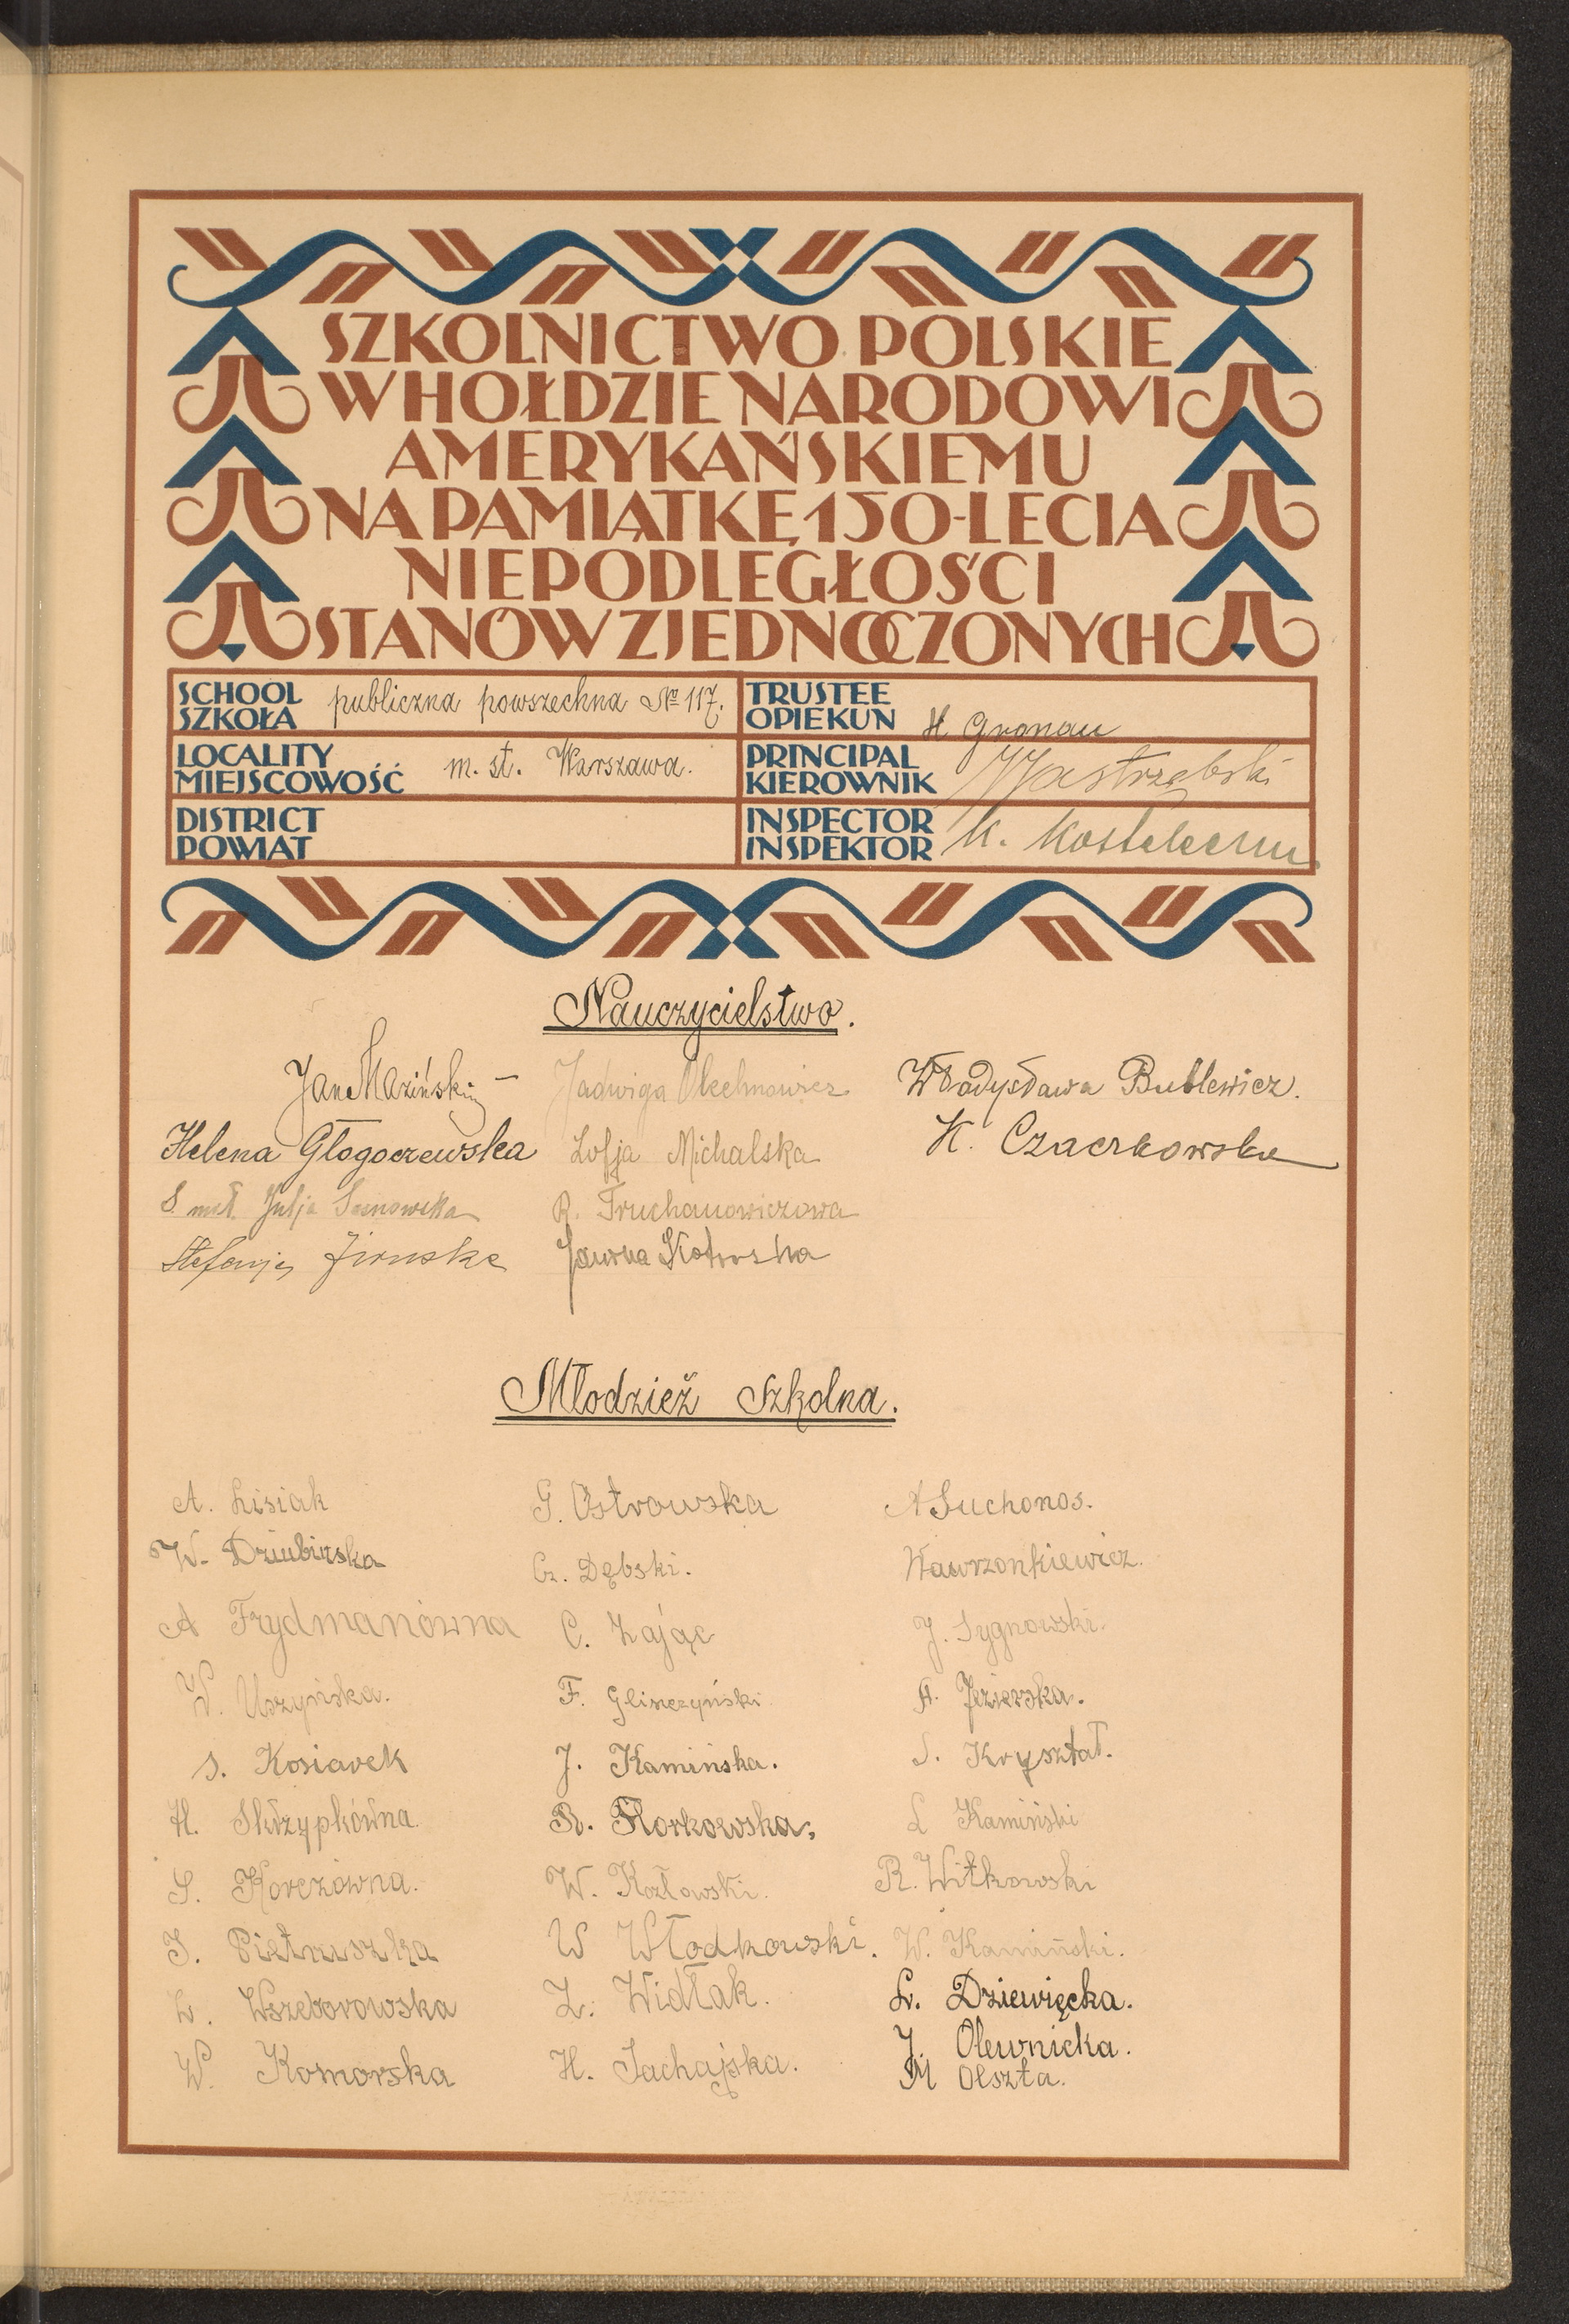 SZKOLNICTWO POLSKIE
W HOŁDZIE NARODOWI
AMERYKAŃSKIEMU
NA PAMIĄTKĘ 150-LECIA
NIEPODLEGŁOŚCI
STANÓW ZJEDNOCZONYCH
SCHOOL
SZKOŁA publiczna powszechna № 117.
TRUSTEE
OPIEKUN H Gronau
LOCALITY
MIEJSCOWOŚĆ m. st. Warszawa.
PRINCIPAL
KIEROWNIK WJastrzębski
DISTRICT
POWIAT
INSPECTOR
INSPEKTOR K.
Nauczycielstwo.
Jan Maziński
Helena Głogoczewska
Julja
Stefanja
Jadwiga Olechnowicz
Zofja Michalska
R. Truchanowiczowa
Janina Kotowska
Władysława Bublewicz.
K. Czaczkowska
Młodzież Szkolna.
A. Lisiak
W. Dziubińska
A Frydmanówna
W. Uszyńska.
S. Kosiarek
H. Skrzypkówna.
S. Korczówna.
J. Pietruszka
W. Wszeborowska
W. Komorska
G. Ostrowska
Cz. Dębski.
C. Zając
F. Glinczyński
J. Kamińska.
R. Florkowska.
W. Kozłowski.
W Włodkowski.
Z. Widłak.
H. Sachajska.
A Suchonos.
Wawrzonkiewicz.
J. Sygnowski.
A. Jezierska.
S. Kryształ.
L Kamiński
R. Witkowski
W. Kamiński.
L. Dziewięcka.
J. Olewnicka.
M Olszta.